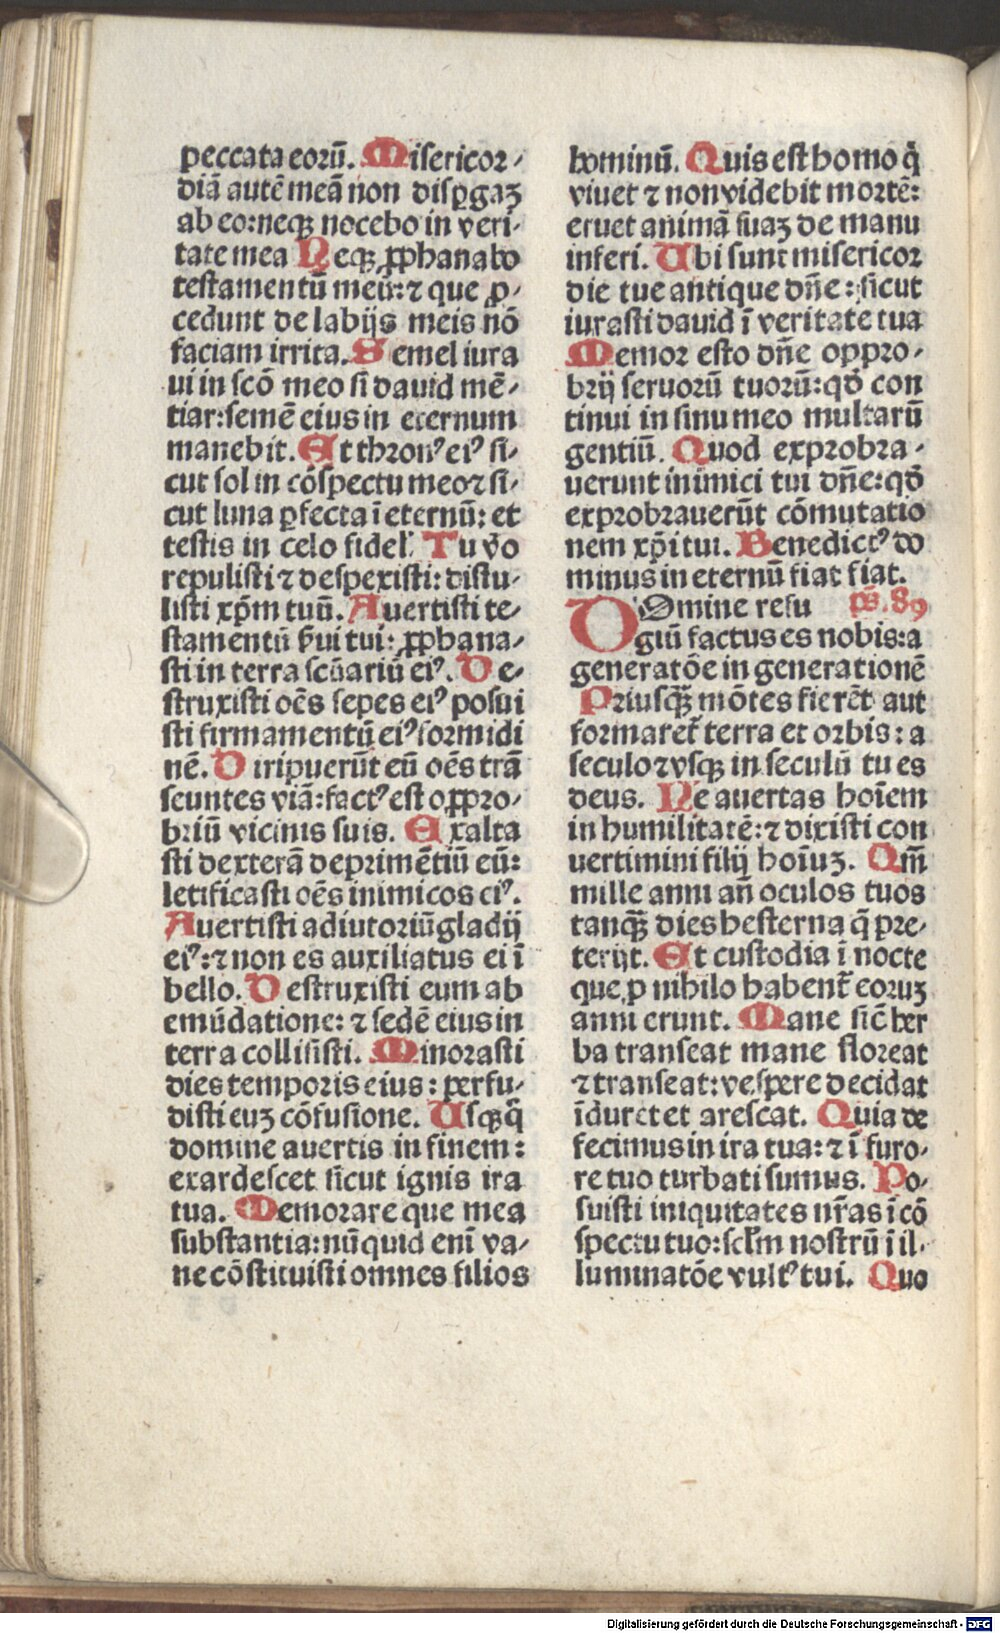 peccata eorū. Misericor⸗
diā autē meā non disꝑgaꝫ
ab eo: neqꝫ nocebo in veri⸗
tate mea Neqꝫ ꝓphanabo
testamentū meū: ⁊ que ꝓ⸗
cedunt de labijs meis nō
faciam irrita. Semel iura
ui in scō meo si dauid mē⸗
tiar: semē eius in eternum
manebit. Et thronꝰ eiꝰ si⸗
cut sol in cōspectu meo ⁊ si⸗
cut luna ꝑfecta ī eternū: et
testis in celo fidel'. Tu v̄o
repulisti ⁊ despexisti: distu⸗
listi xp̄m tuū. Auertisti te⸗
stamentū s̄ui tui: ꝓphana⸗
sti in terra scūariū eiꝰ. De⸗
struxisti oēs sepes eiꝰ posui
sti firmamentū eiꝰ formidi
nē. Diripuerūt eū oēs trā
seuntes viā: factꝰ est opꝓro⸗
briū vicinis suis. Exalta
sti dexterā deprimētiū eū:
letificasti oēs inimicos eiꝰ.
Auertisti adiutoriū gladij
eiꝰ: ⁊ non es auxiliatus ei ī
bello. Destruxisti eum ab
emūdatione: ⁊ sedē eius in
terra collisisti. Minorasti
dies temporis eius: perfu⸗
disti euꝫ cōfusione. Usqꝫq̄
domine auertis in finem:
exardescet sicut ignis ira
tua. Memorare que mea
substantia: nūquid enī va⸗
ne cōstituisti omnes filios
hominū. Quis est homo q̇
viuet ⁊ non videbit mortē:
eruet animā suaꝫ de manu
inferi. Ubi sunt misericor
die tue antique dn̄e: sicut
iurasti dauid ī veritate tua
Memor esto dn̄e oppro⸗
brij seruorū tuorū: qd̄ con
tinui in sinu meo multarū
gentiū. Quod exprobra⸗
uerunt inimici tui dn̄e: qd̄
exprobrauerūt cōmutatio
nem xp̄i tui. Benedictꝰ do
minus in eternū fiat fiat.
DOmine refu ps̄. 89
giū factus es nobis: a
generatōe in generationē
Priusqꝫ mōtes fierēt aut
formaret᷑ terra et orbis: a
seculo ⁊ vsqꝫ in seculū tu es
deus. Ne auertas hoīem
in humilitatē: ⁊ dixisti con
uertimini filij hoīuꝫ. Qm̄
mille anni an̄ oculos tuos
tanqꝫ dies hesterna q̄ pre⸗
terijt. Et custodia ī nocte
que ꝓ nihilo habent᷑ eoruꝫ
anni erunt. Mane sic̄ her
ba transeat mane floreat
⁊ transeat: vespere decidat
īduret et arescat. Quia de
fecimus in ira tua: ⁊ ī furo⸗
re tuo turbati sumus. Po⸗
suisti iniquitates nr̄as ī cō
spectu tuo: sclm̄ nostrū ī il⸗
luminatōe vultꝰ tui. Quo
Digitalisierung gefördert durch die Deutsche Forschungsgemeinschaft - DFG